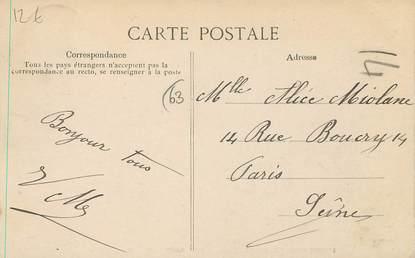 12 €
CARTE POSTALE
Correspondance
Tous les pays étrangers n'acceptent pas la
correspondance au recto, se renseigner à la poste
63
Bonjour tous
Adresse
Mlle Alice Miolane
14 Rue Boucry 14
Paris
Seine